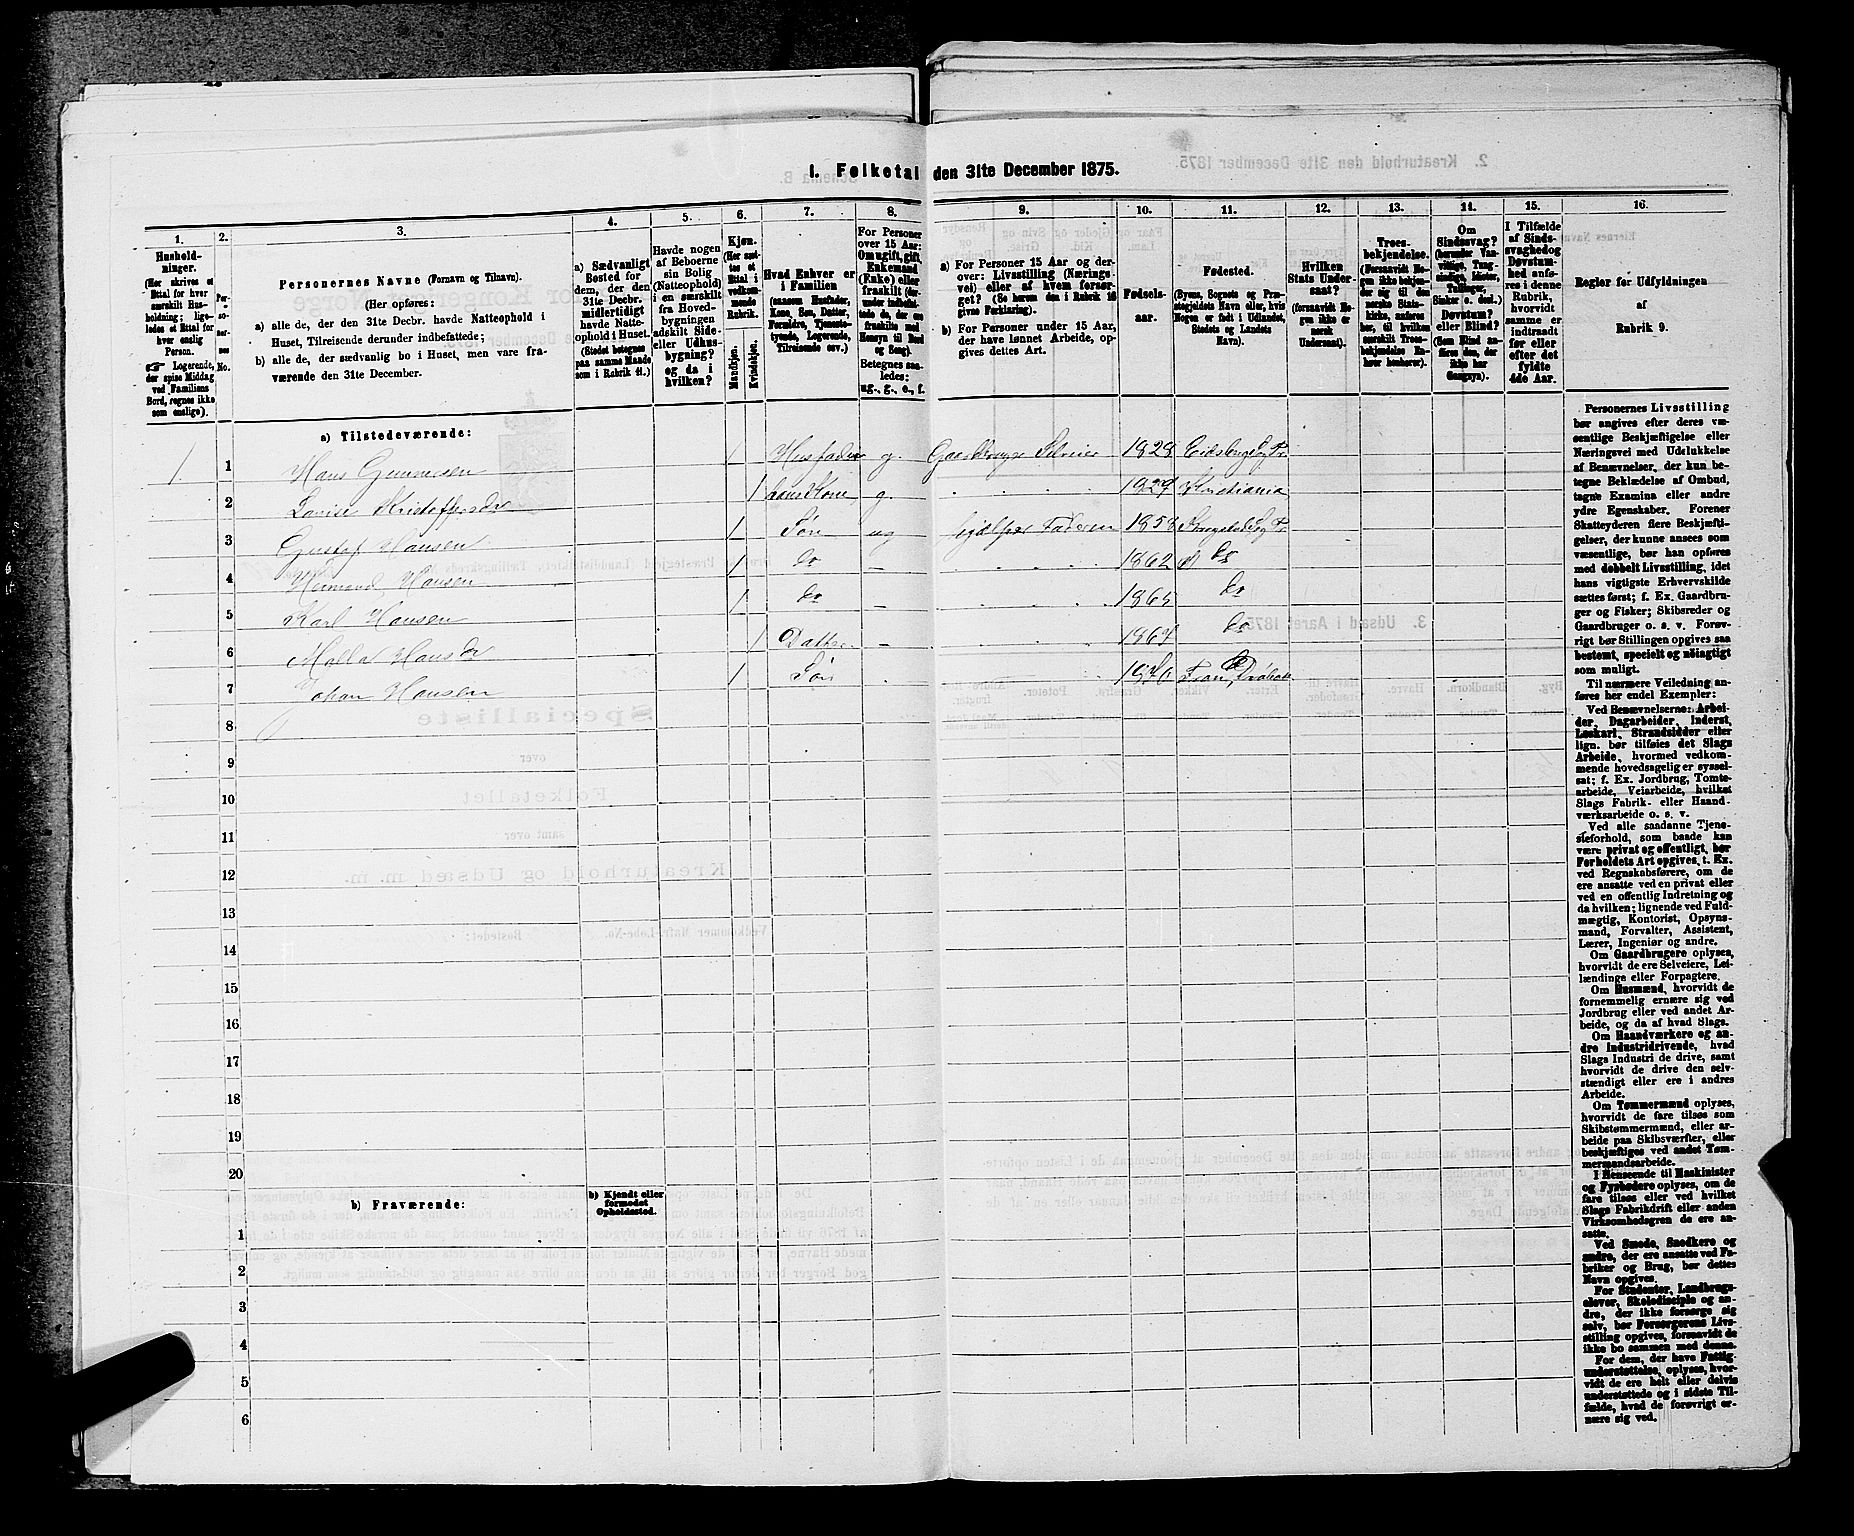 1. Folketal den 31te December 1875.
1.
2.
3.
4.
5.
6.
7.
8.
9.
10.
11.
12.
13.
14.
15.
16.
Hushold-
ninger.
(Her skrives et
Ettal for hver
særskilt Hus-
holdning; lige-
ledes et Ettal for
hver enslig
Person.
☞ Logerende,
der spise Middag
ved Familiens
Bord, regnes ikke
som enslige).
Per-
so-
ner-
nes
No.
Personernes Navne (Fornavn og Tilnavn).
(Her opføres:
a) alle de, der den 31te Decbr. havde Natteophold i
Huset, Tilreisende derunder indbefattede;
b) alle de, der sædvanlig bo i Huset, men vare fra-
værende den 31te December.
a) Sædvanligt
Bosted for
dem, der den
31te Decbr.
midlertidigt
havde Natte-
ophold i Huset.
(Stedet betegnes
paa samme Maade
som i Rubrik 11.)
Havde nogen
af Beboerne
sin Bolig
(Natteophold)
i en særskilt
fra Hoved-
bygningen
adskilt Side-
eller Udhus-
bygning?
og da i
hvilken?
Kjøn.
(Her sæt-
tes et
Ettal i
vedkom-
mende
Rubrik.
Mandkjøn.
Kvindekjøn.
Hvad Enhver er
i Familien
(saasom Husfader,
Kone, Søn, Datter,
Forældre, Tjeneste-
tyende, Logerende,
Tilreisende osv.)
For Personer
over 15 Aar:
Om ugift, gift,
Enkemand
(Enke) eller
fraskilt (der-
under indbefat-
tede de, der ere
fraskilte med
Hensyn til Bord
og Seng).
Betegnes saa-
ledes:
ug., g., e., f.
a) For Personer 15 Aar og der-
over: Livsstilling (Nærings-
vei) eller af hvem forsør-
get? (Se herom den i Rubrik 16
givne Forklaring).
b) For Personer under 15 Aar,
der have lønnet Arbeide, op-
gives dettes Art.
Fødsels-
aar.
Fødested.
(Byens, Sognets og Præ-
stegjeldets Navn eller, hvis
Nogen er født i Udlandet,
Stedets og Landets
Navn).
Hvilken
Stats Under-
saat?
(forsaavidt No-
gen ikke er
norsk
Undersaat).
Troes-
bekjendelse.
(Forsaavidt No-
gen ikke beken-
der sig til den
norske Stats-
kirke, anføres
her, til hvilken
særskilt Troes-
bekjendelse En-
hver henhører).
Om
Sindssvag?
(herunder Van-
vittige, Tung-
sindige, Idioter,
Sinker o. desl.)
Døvstum?
eller Blind?
(Som Blind an-
føres den, der
ikke har
Gangsyn).
I Tilfælde
af Sinds-
svaghed og
Døvstum-
hed anfø-
res i denne
Rubrik,
hvorvidt
samme er
indtraadt
før eller
efter det
fyldte
4de Aar.
Regler for Udfyldningen
af
Rubrik 9.
a) Tilstedeværende:
1 1 Hans Gunnersen 1 Husfader g. Gaardbruger Selveier 1828
2 Lovise Kristoffersdr 1 hans Kone g. Kristiania
3 Gustaf Hansen 1 Søn ug Faderen 1858
4 Hansen 1 do 1862 do
5 Karl Hansen 1 do 1865 do
6 Hansdr 1 1867 do
7 Johan Hansen 1 Søn
8
9
10
11
12
13
14
15
16
17
18
19
20
b) Fraværende:
b) Kjendt eller
formodet
Opholdssted.
1
2
3
4
5
6
Personernes Livsstilling
bør angives efter deres væ-
sentlige Beskjæftigelse eller
Næringsvei med Udelukkelse
af Benævnelser, der kun be-
tegne Beklædelse af Ombud,
tagne Examina eller andre
ydre Egenskaber. Forener
Skatteyderen flere Beskjæfti-
gelser, der kunne ansees som
væsentlige, bør han opføres
med dobbelt Livsstilling, idet
hans vigtigste Erhvervskilde
sættes først; f. Ex. Gaardbru-
ger og Fisker; Skibsreder og
Gaardbruger o. s. v. Forøv-
rigt bør Stillingen opgives saa
bestemt, specielt og nøiagtigt
som muligt.
Til nærmere Veiledning an-
føres her endel Exempler:
Ved Benævnelserne: Arbei-
der, Dagarbeider, Inderst,
Løskarl, Strandsidder eller
lign. bør tilføies det Slags
Arbeide, hvormed vedkom-
mende hovedsagelig er syssel-
sat; f. Ex. Jordbrug, Tomte-
arbeide, Veiarbeide, hvilket
Slags Fabrik- eller Haand-
værksarbeide o. s. v.
Ved alle saadanne Tjene-
steforhold, som baade kan
være privat og offentligt, bør
Forholdets Art opgives, t. Ex.
ved Regnskabsførere, om de
ere ansatte ved en privat eller
ved en offentlig Indretning og
da hvilken; lignende ved Fuld-
mægtig, Kontorist, Opsyns-
mand, Forvalter, Assistent,
Lærer, Ingeniør og andre.
Om Gaardbrugere oplyses,
hvorvidt de ere Selveiere, Lei-
lændinge eller Forpagtere.
Om Husmænd, hvorvidt de
fornemmelig ernære sig ved
Jordbrug eller ved andet Ar-
beide, og da af hvad Slags.
Om Haandværkere og an-
dre Industridrivende, hvad
Slags Industri de drive, samt
hvorvidt de drive den selv-
stændigt eller ere i andres
Arbeide.
Om Tømmermænd oplyses,
hvorvidt de fare tilsøs som
Skibstømmermænd, eller ar-
beide paa Skibsværfter, eller
beskjæftiges ved andet Tøm-
mermandsarbeide.
I Henseende til Maskinister
og Fyrbødere oplyses, om de
fare tilsøs eller ved hvilket
Slags Fabrikdrift eller anden
Virksomhedsgren de ere an-
satte.
Ved Smede, Snedkere og
andre, der ere ansatte ved Fa-
briker og Brug, bør dettes
Navn opgives.
For Studenter, Landbrugs-
elever, Skoledisciple og an-
dre, der ikke forsørge sig
selv, bør Forsørgerens Livs-
stilling opgives, forsaavidt de
ikke bo sammen med denne.
For dem, der have Fattig-
understøttelse, oplyses, hvor-
vidt de ere helt eller delvis
understøttede og i sidste Til-
fælde, hvad de forøvrigt er-
nære sig ved.